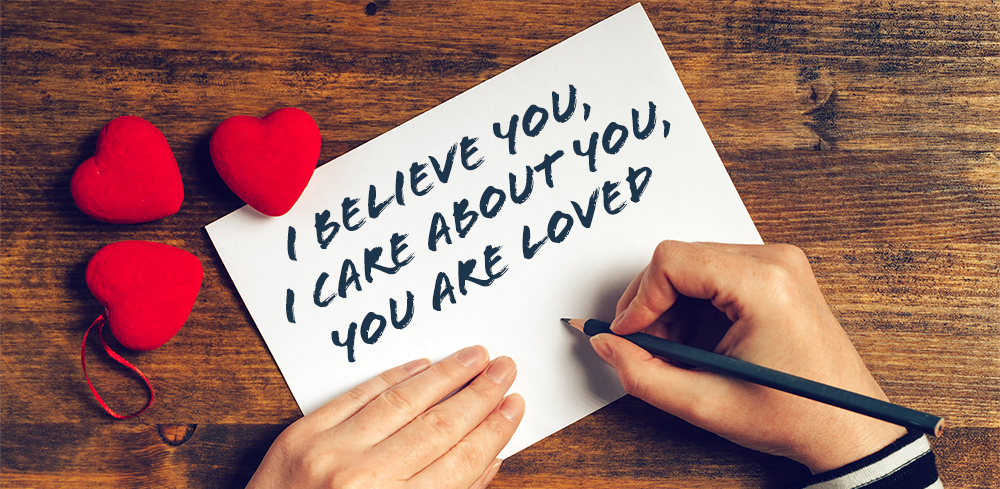 I BELIEVE YOU,
I CARE ABOUT YOU,
YOU ARE LOVED